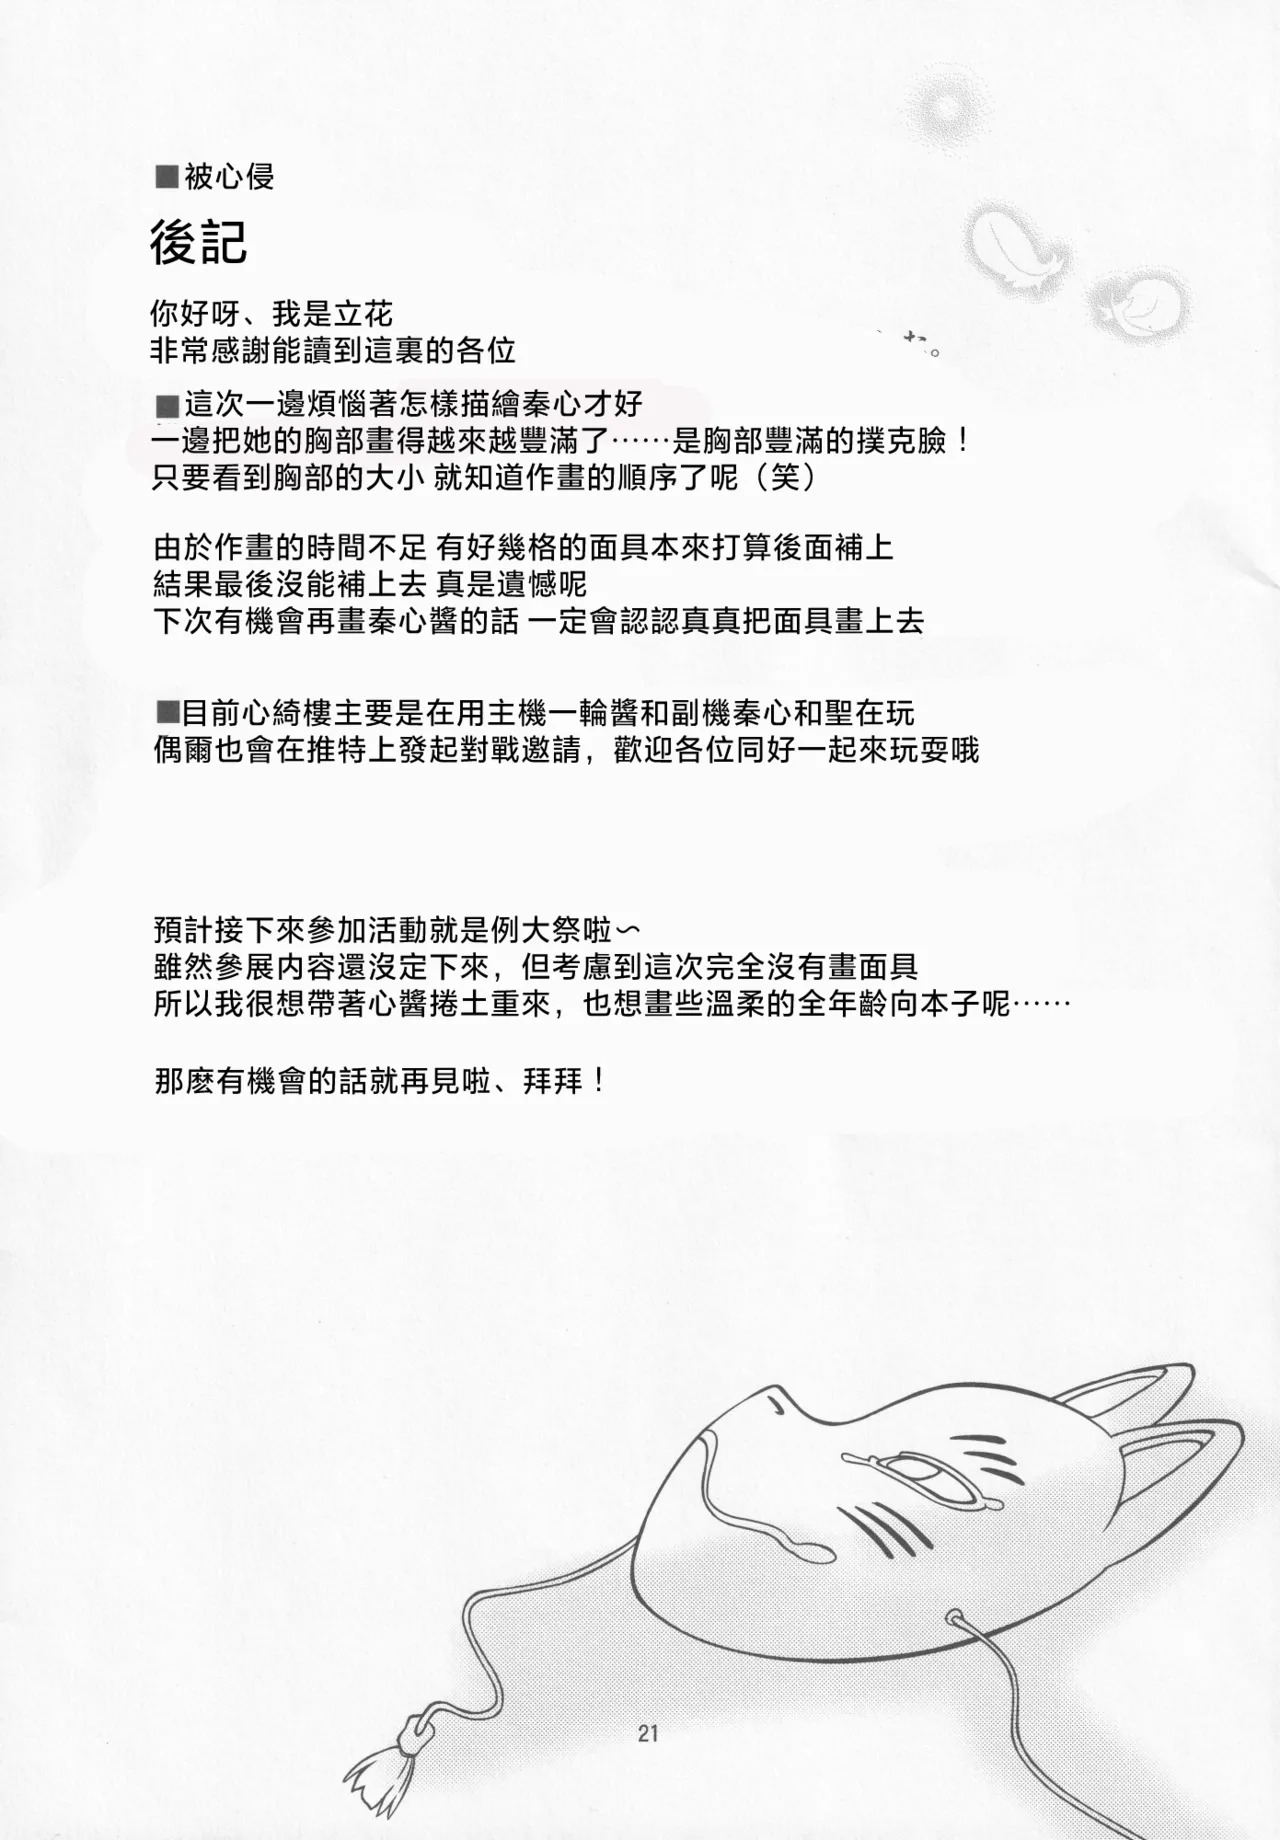 ■被心侵
後記
你好呀、我是立花
非常感謝能讀到這裏的各位
■這次一邊煩惱著怎樣描繪秦心才好
一邊把她的胸部畫得越來越豐滿了⋯⋯是胸部豐滿的撲克臉！
只要看到胸部的大小 就知道作畫的順序了呢（笑）
由於作畫的時間不足 有好幾格的面具本來打算後面補上
結果最後沒能補上去 真是遺憾呢
下次有機會再畫秦心醬的話 一定會認認真真把面具畫上去
■目前心綺樓主要是在用主機一輪醬和副機秦心和聖在玩
偶爾也會在推特上發起對戰邀請，歡迎各位同好一起來玩耍哦
預計接下來參加活動就是例大祭啦～
雖然參展内容還沒定下來，但考慮到這次完全沒有畫面具
所以我很想帶著心醬捲土重來，也想畫些溫柔的全年齡向本子呢⋯⋯
那麽有機會的話就再見啦、拜拜！
21